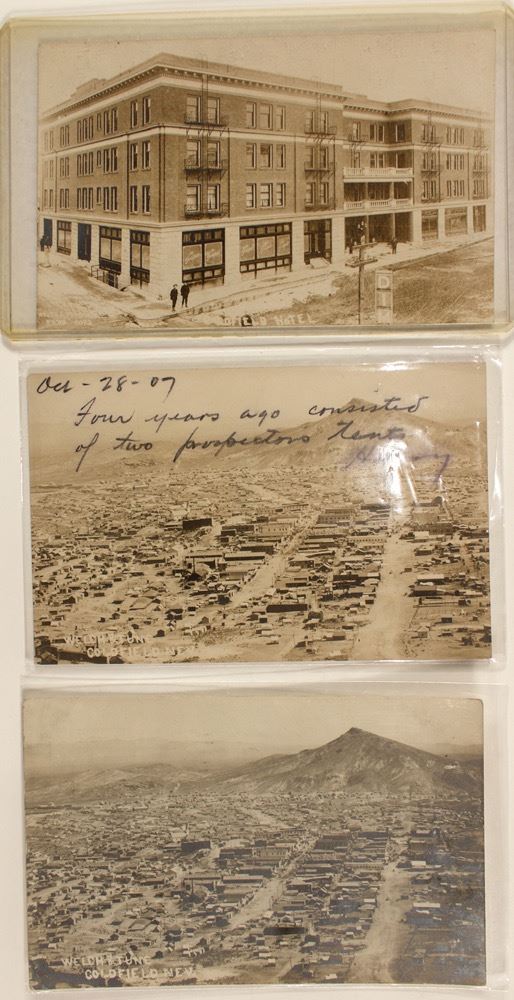 GOLDFIELD HOTEL
Oct - 28 - 07
Four years ago consisted
of two prospectors tents
WELCH & TUNE
GOLDFIELD NEV.
WELCH & TUNE
GOLDFIELD, NEV.